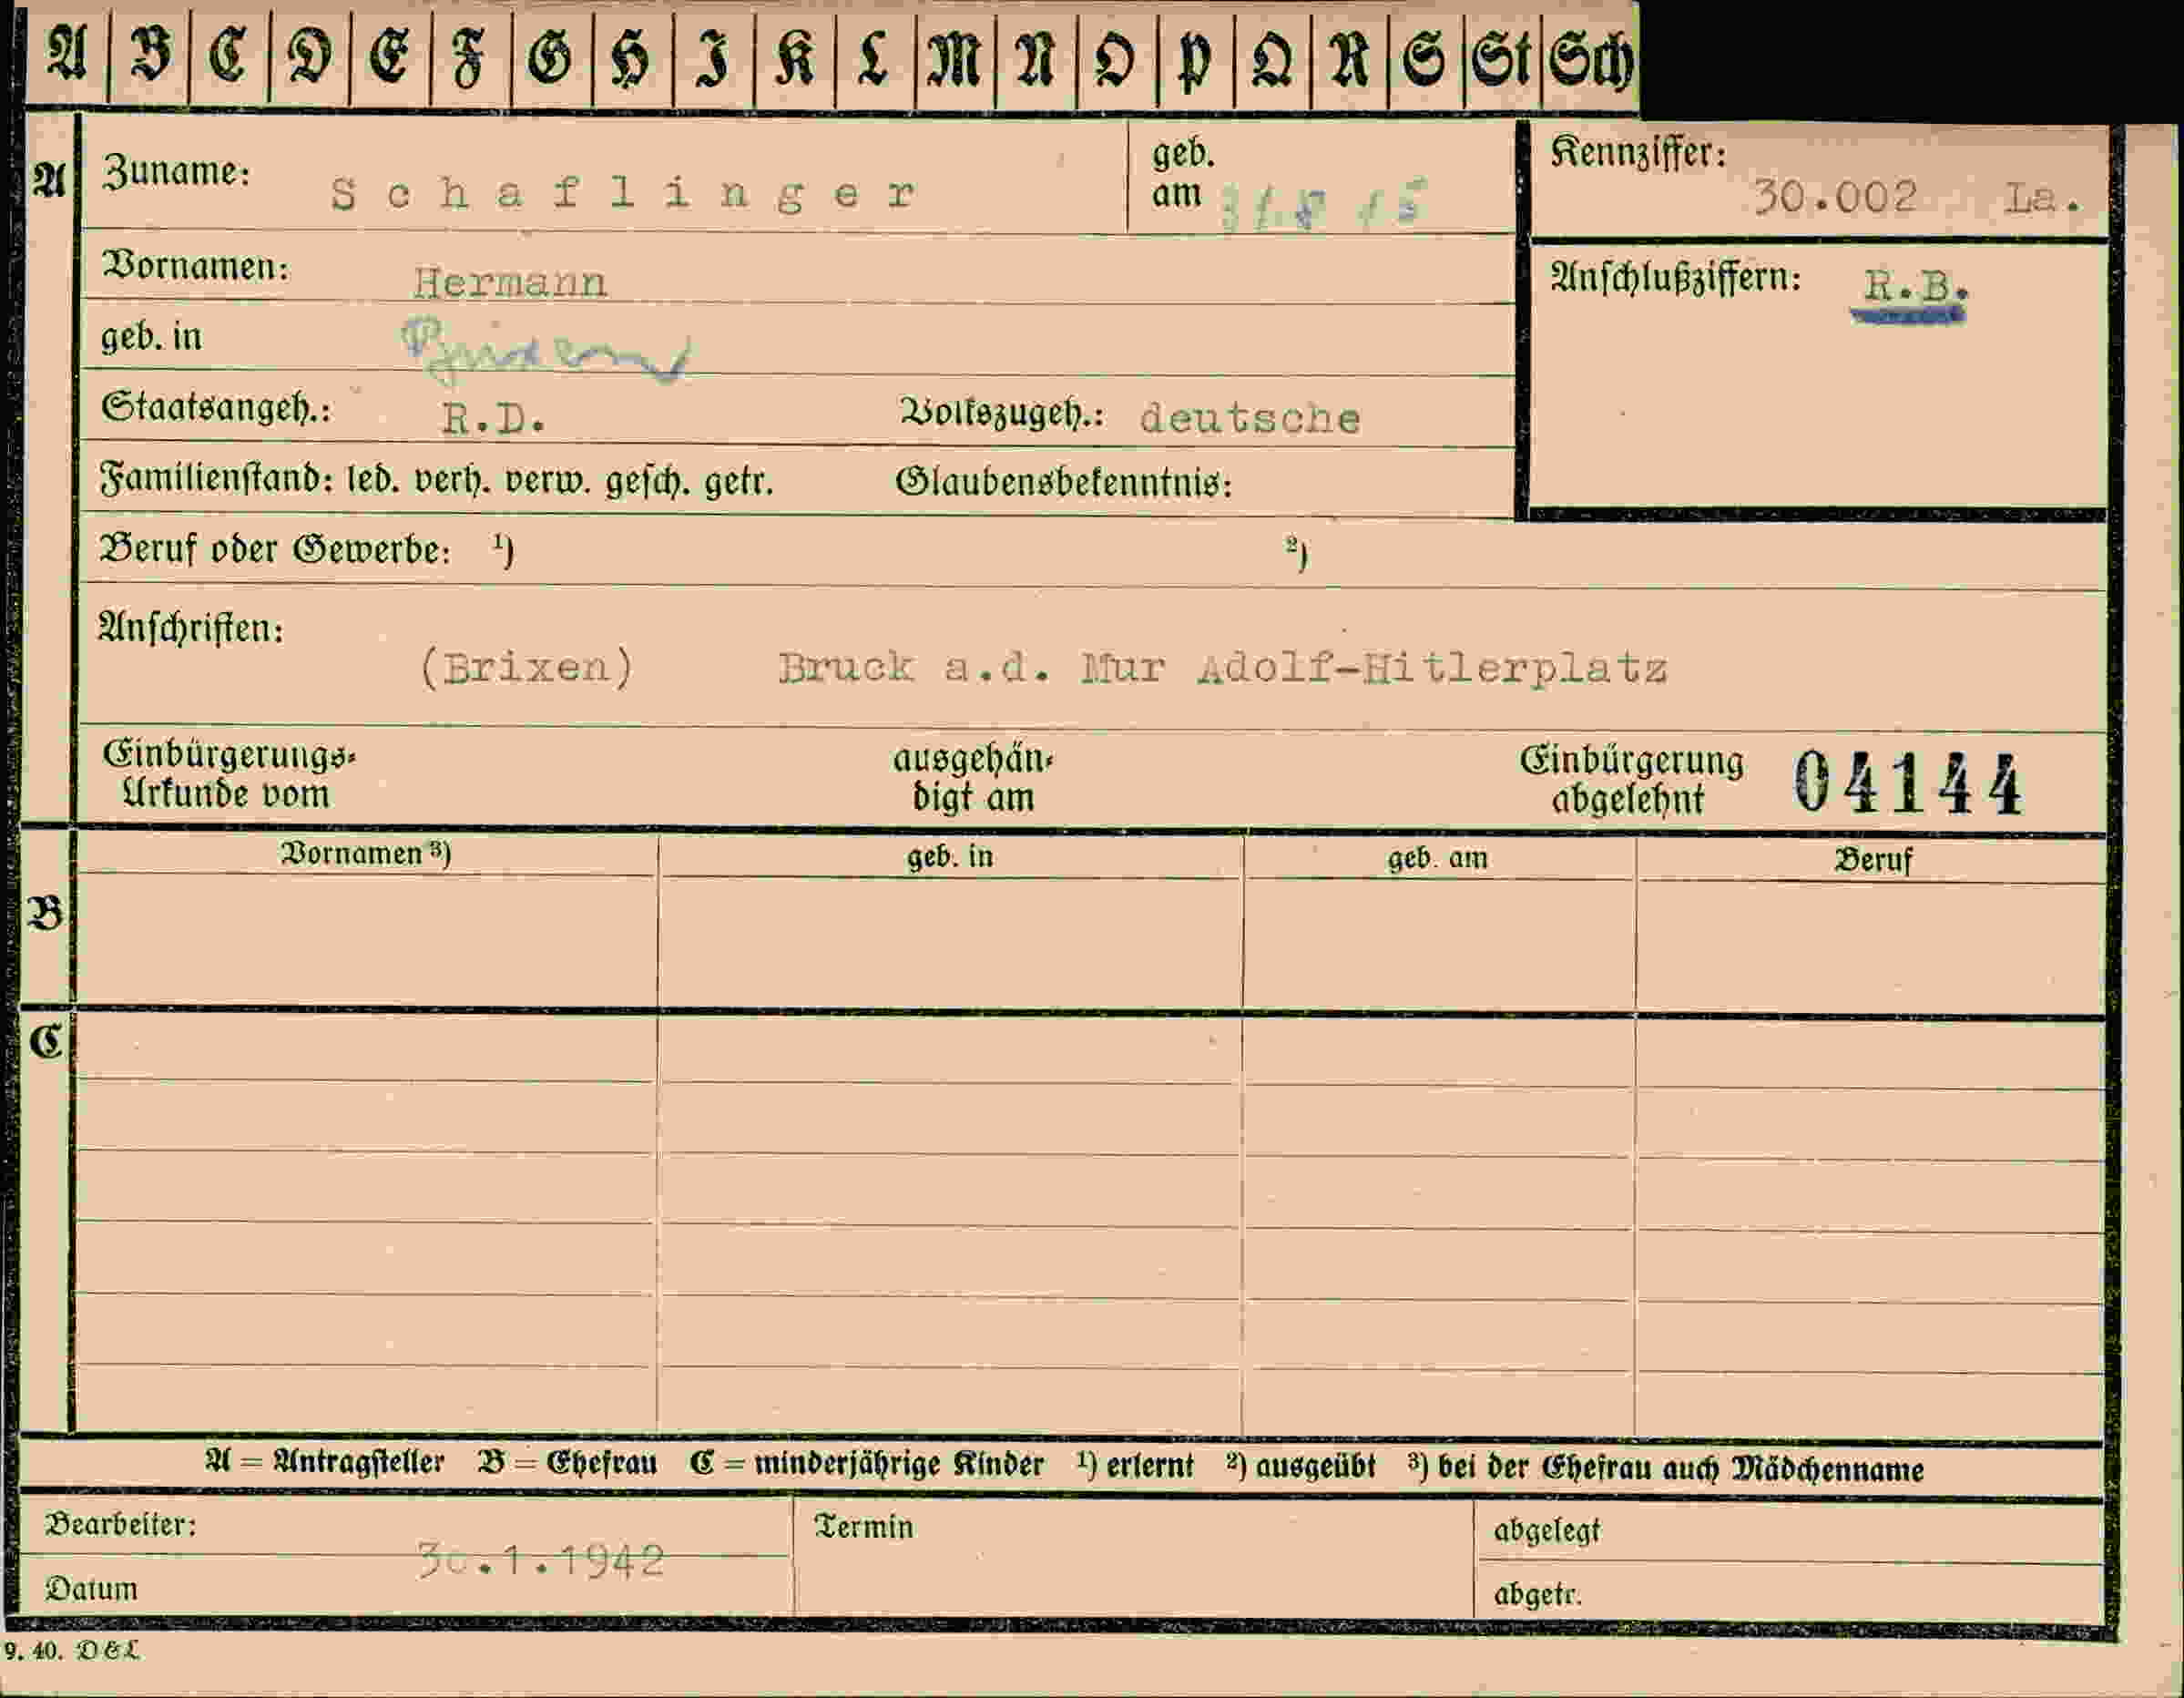 A B C D E F G H I K L M N O P Q R S St Sch
A Zuname: Schaflinger geb. am Kennziffer: 30.002 La.
Vornamen: Hermann Anschlußziffern: R.B.
geb. in
Staatsangeh.: R.D. Volkszugeh.: deutsche
Familienstand: led. verh. verw. gesch. getr. Glaubensbekenntnis:
Beruf oder Gewerbe: ¹) ²)
Anschriften:
(Brixen) Bruck a.d. Mur Adolf-Hitlerplatz
Einbürgerungs- ausgehän- Einbürgerung 04144
Urkunde vom digt am abgelehnt
Vornamen ³) geb. in geb. am Beruf
B
C
A = Antragsteller B = Ehefrau C = minderjährige Kinder ¹) erlernt ²) ausgeübt ³) bei der Ehefrau auch Mädchenname
Bearbeiter: Termin abgelegt
30.1.1942
Datum abgetr.
9. 40. D&L